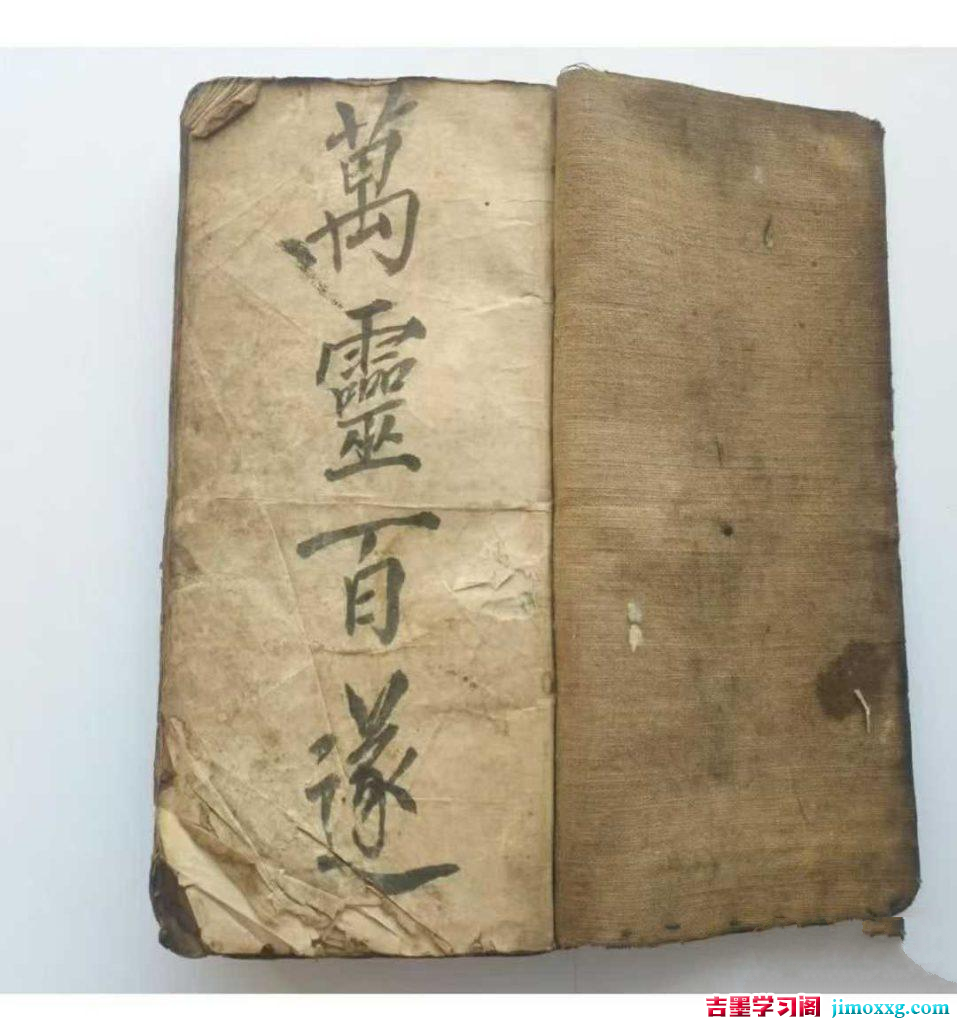 萬靈百遂
吉墨学习阁 jimoxxg.com